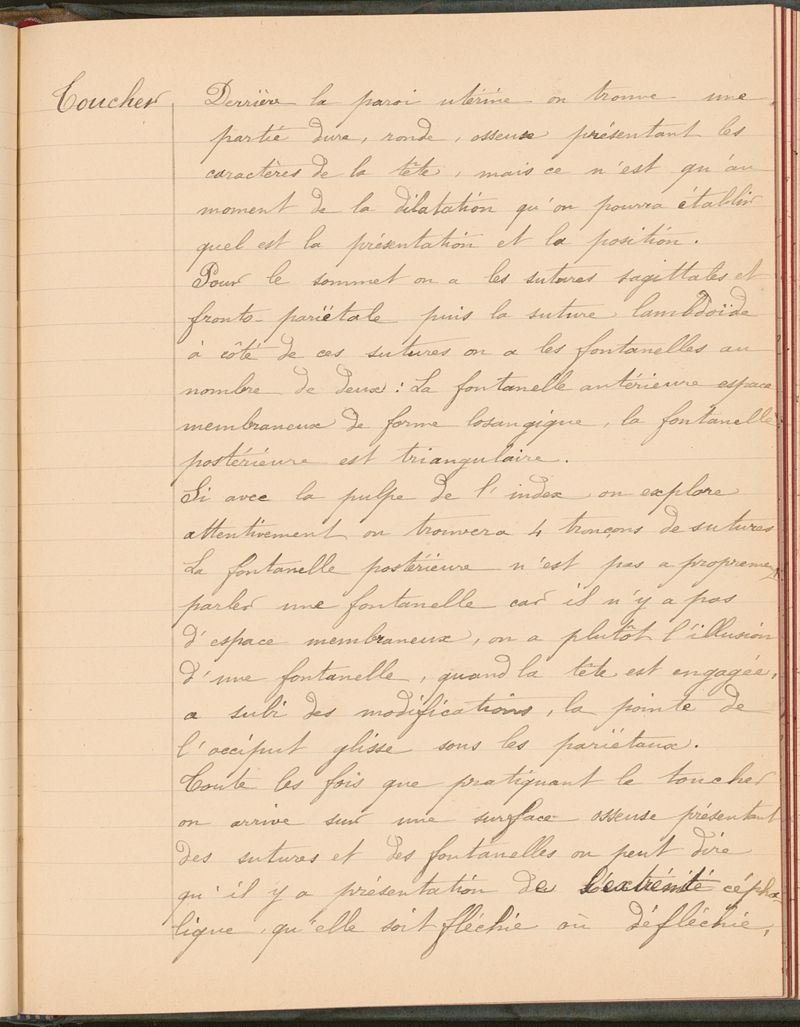 Toucher
Derrière la paroi utérine on trouve une
partie dure, ronde, osseuse présentant les
caractères de la tête, mais ce n'est qu'au
moment de la dilatation qu'on pourra établir
quel est la présentation et la position.
Pour le sommet on a les sutures sagittales et
fronto-pariétale puis la suture lambdoïde
à côté de ces sutures on a les fontanelles au
nombre de deux : La fontanelle antérieure espace
membraneux de forme losangique, la fontanelle
postérieure est triangulaire.
Si avec la pulpe de l'index on explore
attentivement on trouvera 4 tronçons de sutures
La fontanelle postérieure n'est pas a propremen
parler une fontanelle car il n'y a pas
d'espace membraneux, on a plutôt l'illusion
d'une fontanelle, quand la tête est engagée,
a subi des modifications, la pointe de
l'occiput glisse sous les pariétaux.
Toute les fois que pratiquant le toucher
on arrive sur une surface osseuse présentant
des sutures et des fontanelles on peut dire
qu'il y a présentation de l'extrémité cépha-
lique, qu'elle soit fléchie où défléchie,